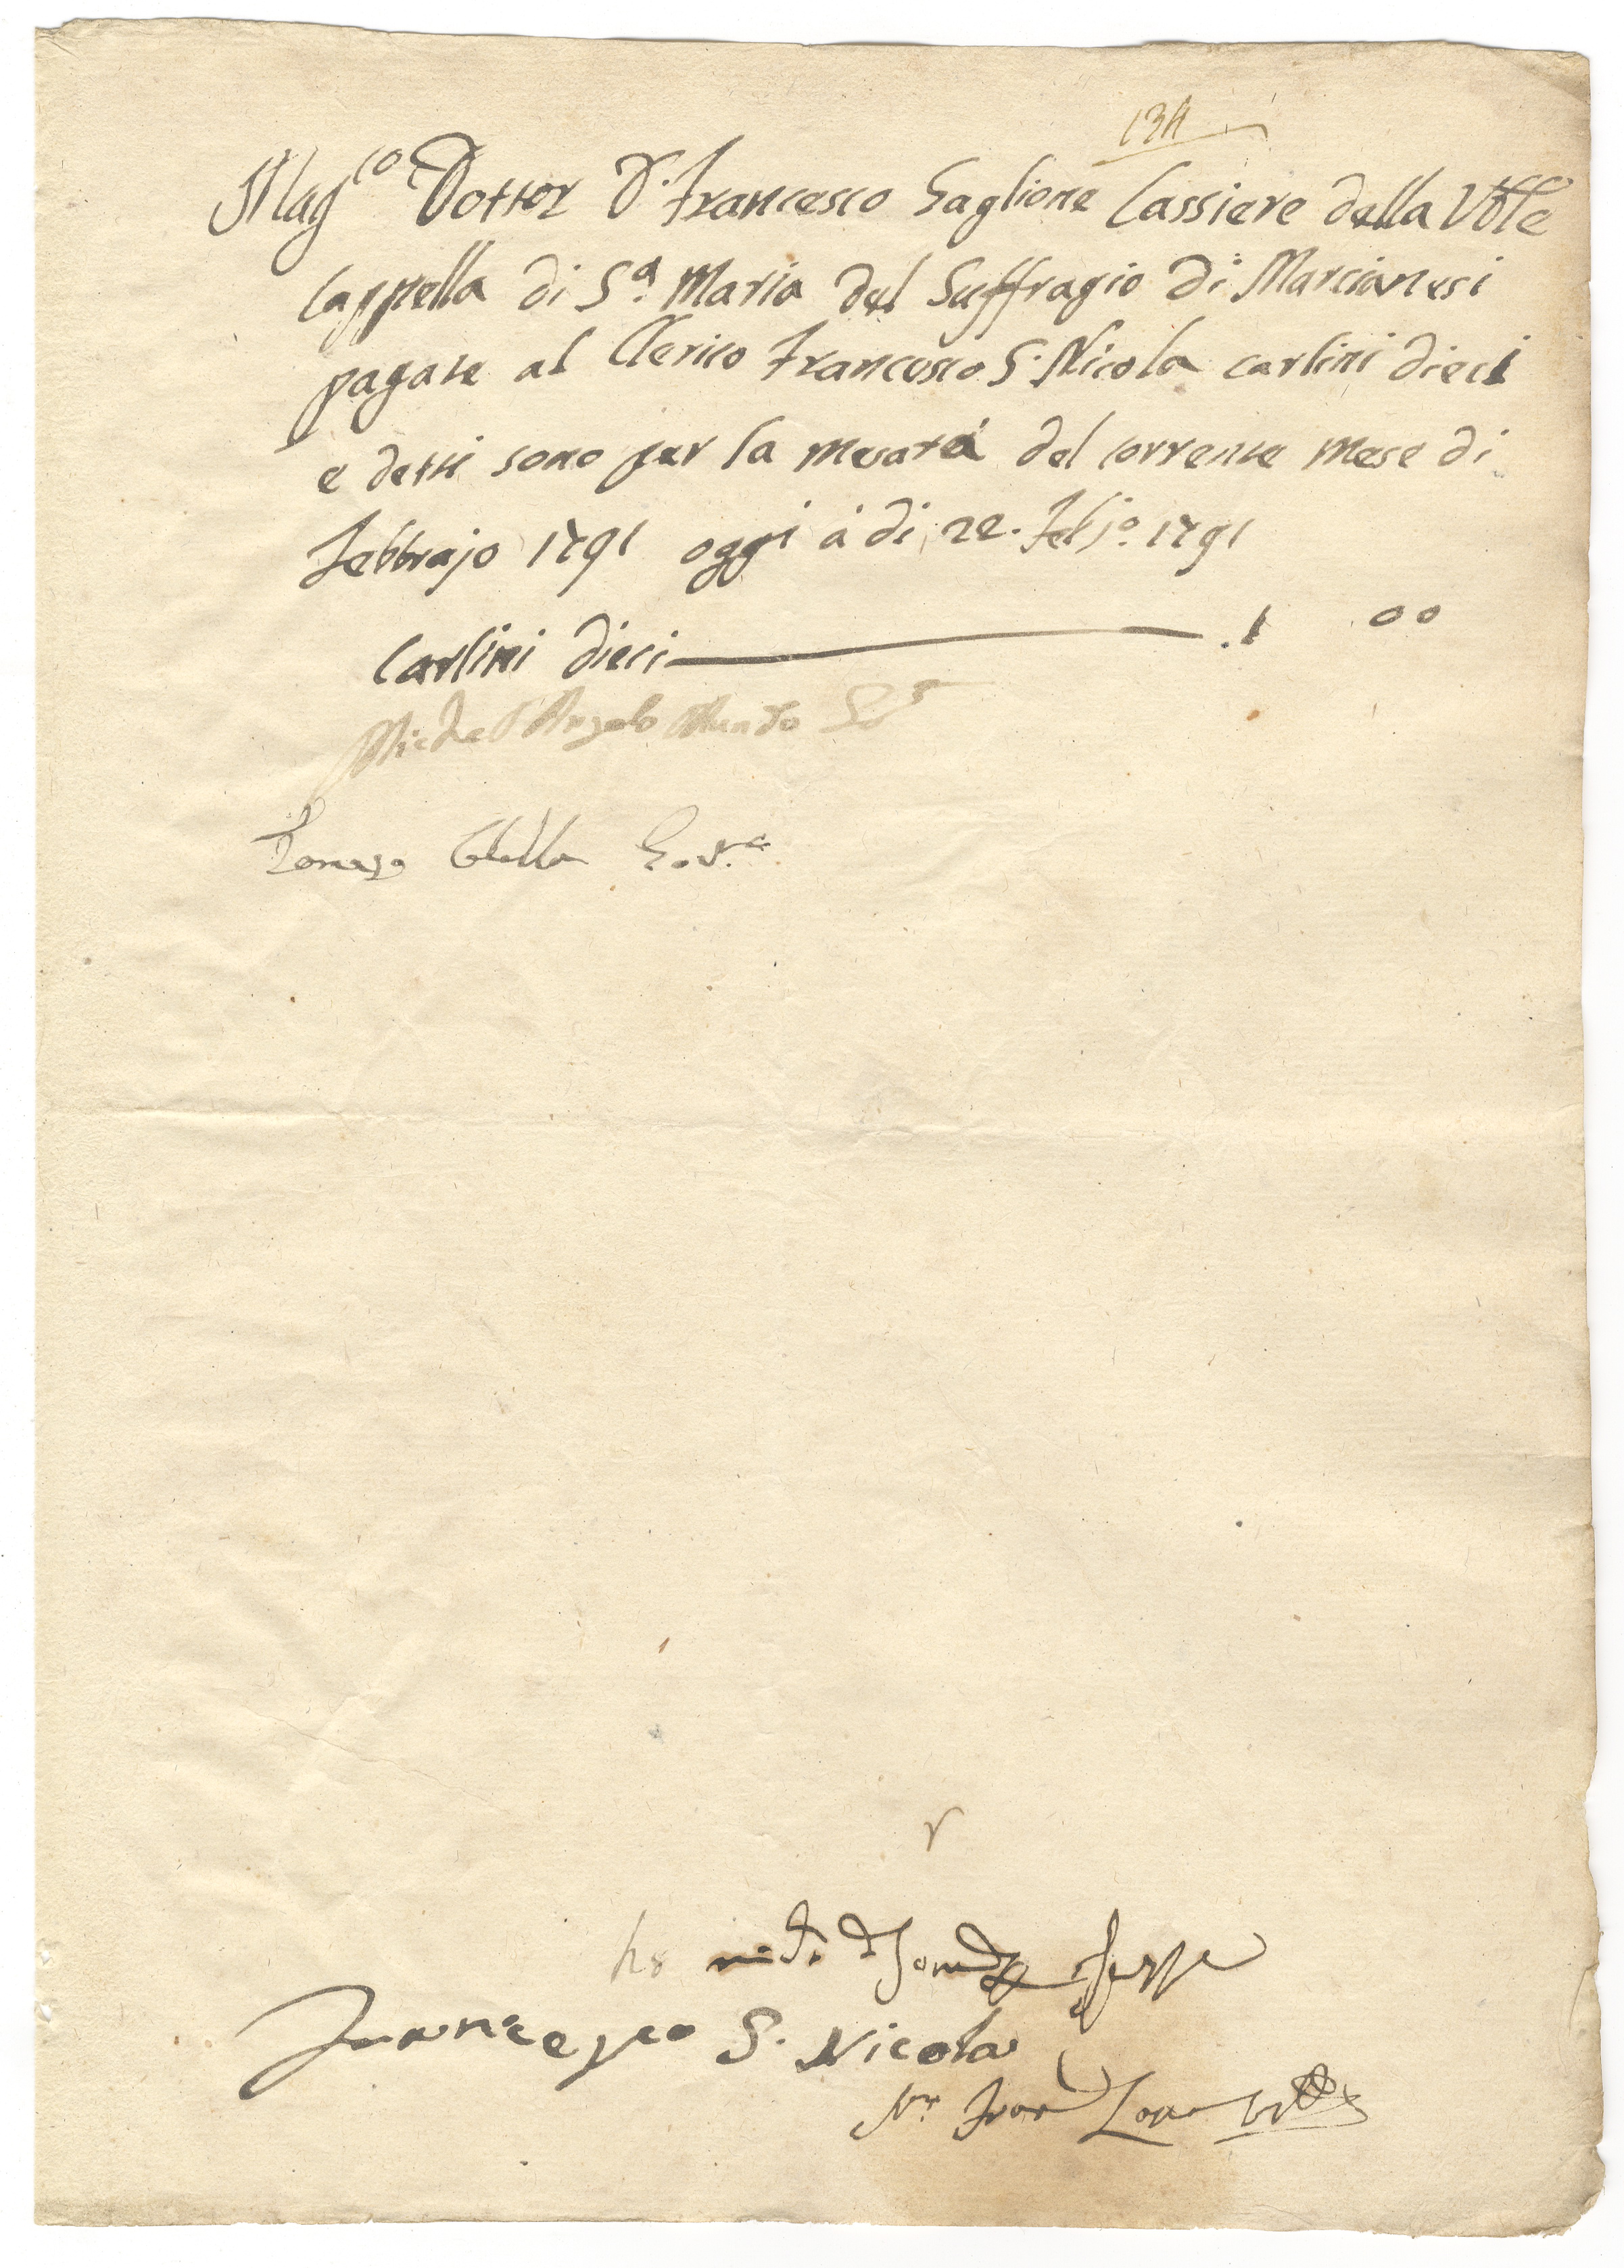 134
Mag.co Dottor D. Francesco Gaglione Cassiere della Vble
Cappella di S.a Maria del Suffragio di Marcianesi
pagate al Clerico Francesco S. Nicola carlini dieci
e detti sono per la mesata del corrente mese di
Febbrajo 1791 oggi à di 22. Feb.jo 1791
Carlini dieci 1 00
Michel'Angelo Mundo
Tomaso
Francesco S. Nicola